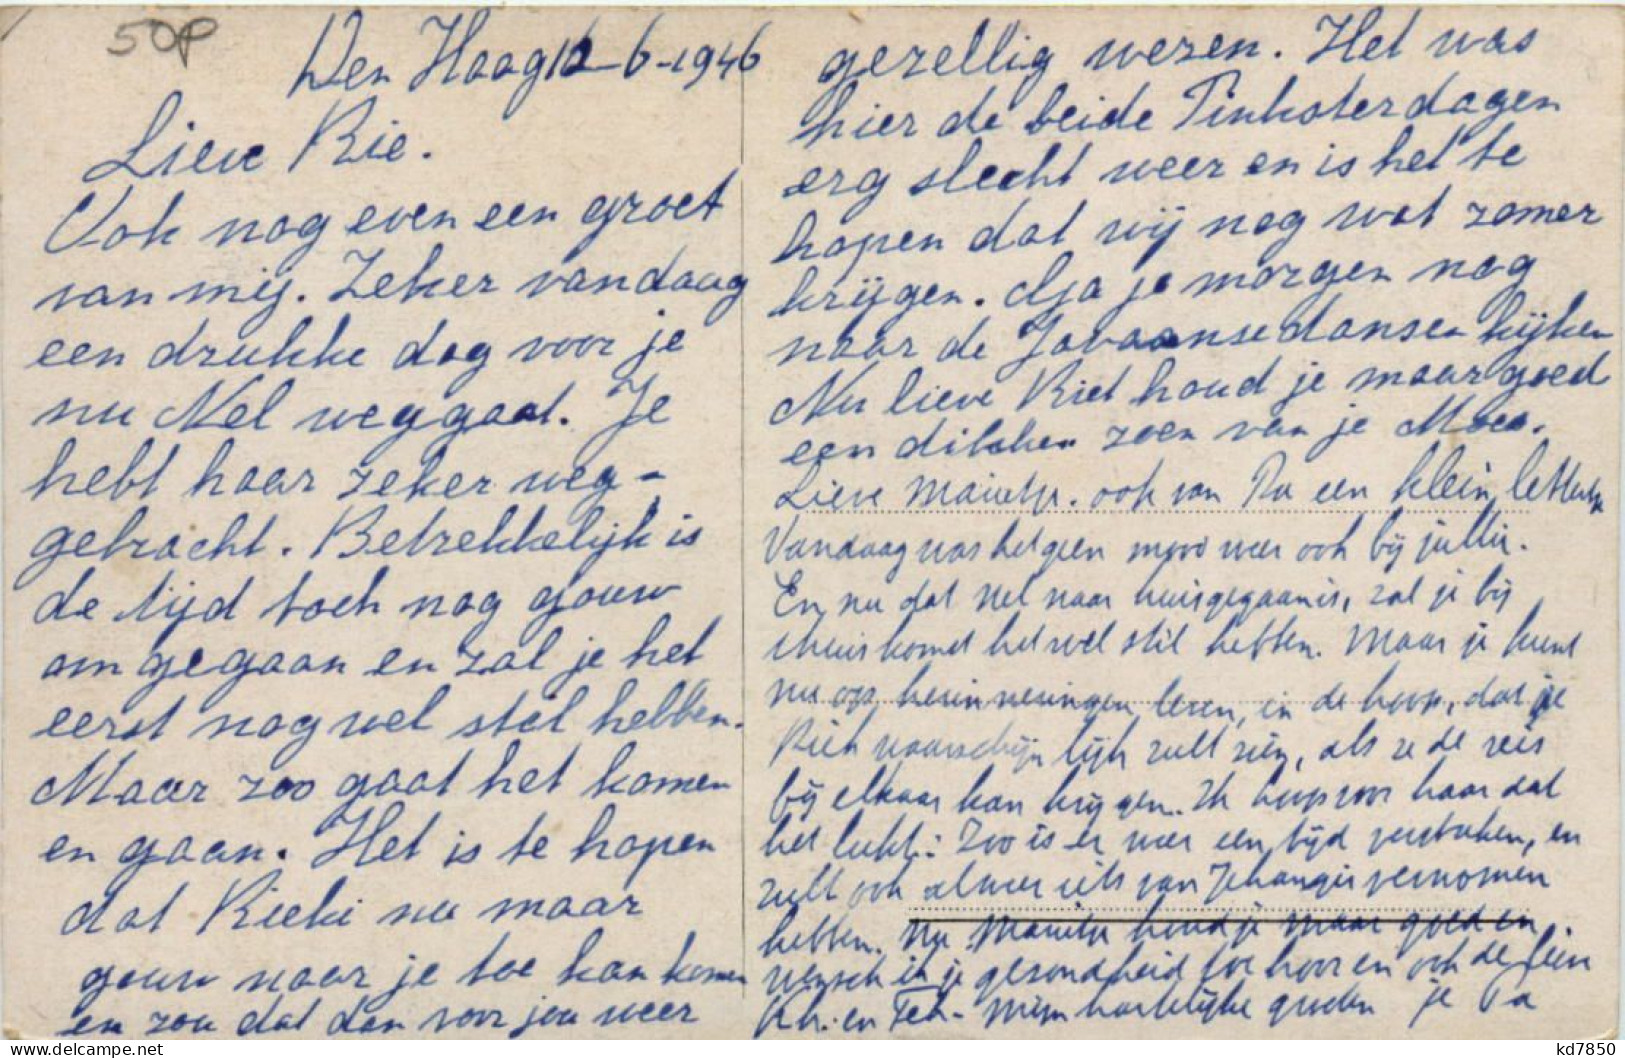 50p
Den Haag 12-6-1946
Lieve Rie.
Ook nog even een groet
van mij. Zeker vandaag
een drukke dag voor je
nu Nel weggaat. Je
hebt haar zeker weg-
gebracht. Betrekkelijk is
de tijd toch nog gouw
om gegaan en zal je het
eerst nog wel stil hebben.
Maar zoo gaat het komen
en gaan. Het is te hopen
dat Rieki nu maar
gouw naar je toe kan komen
en zou dat dan voor jou weer
gezellig wezen. Het was
hier de beide Pinksterdagen
erg slecht weer en is het te
hopen dat wij nog wat zomer
krijgen. Ga je morgen nog
naar de Javaansedansen kijken
Nu lieve Riet houd je maar goed
een dikken zoen van je Moes.
Lieve Marietje. ook van Pa een klein
Vandaag was het geen mooi weer ook bij jullie.
En nu dat Nel naar huis gegaan is, zal je bij
thuiskomst het wel stil hebben. Maar je kunt
nu op herinneringen leven, in de hoop, dat je
Riek waarschijnlijk zult zien, als ze de reis
bij elkaar kan krijgen. Ik hoop voor haar dat
het lukt. Zoo is er weer een tijd verstreken, en
zult ook alweer iets van Jehangir vernomen
hebben. Nu Marietje houd je maar goed en
wensch ik je gezondheid toe hoor en ook de fam
Kh. en Feh. Mijn hartelijke groeten je Pa
kd7850